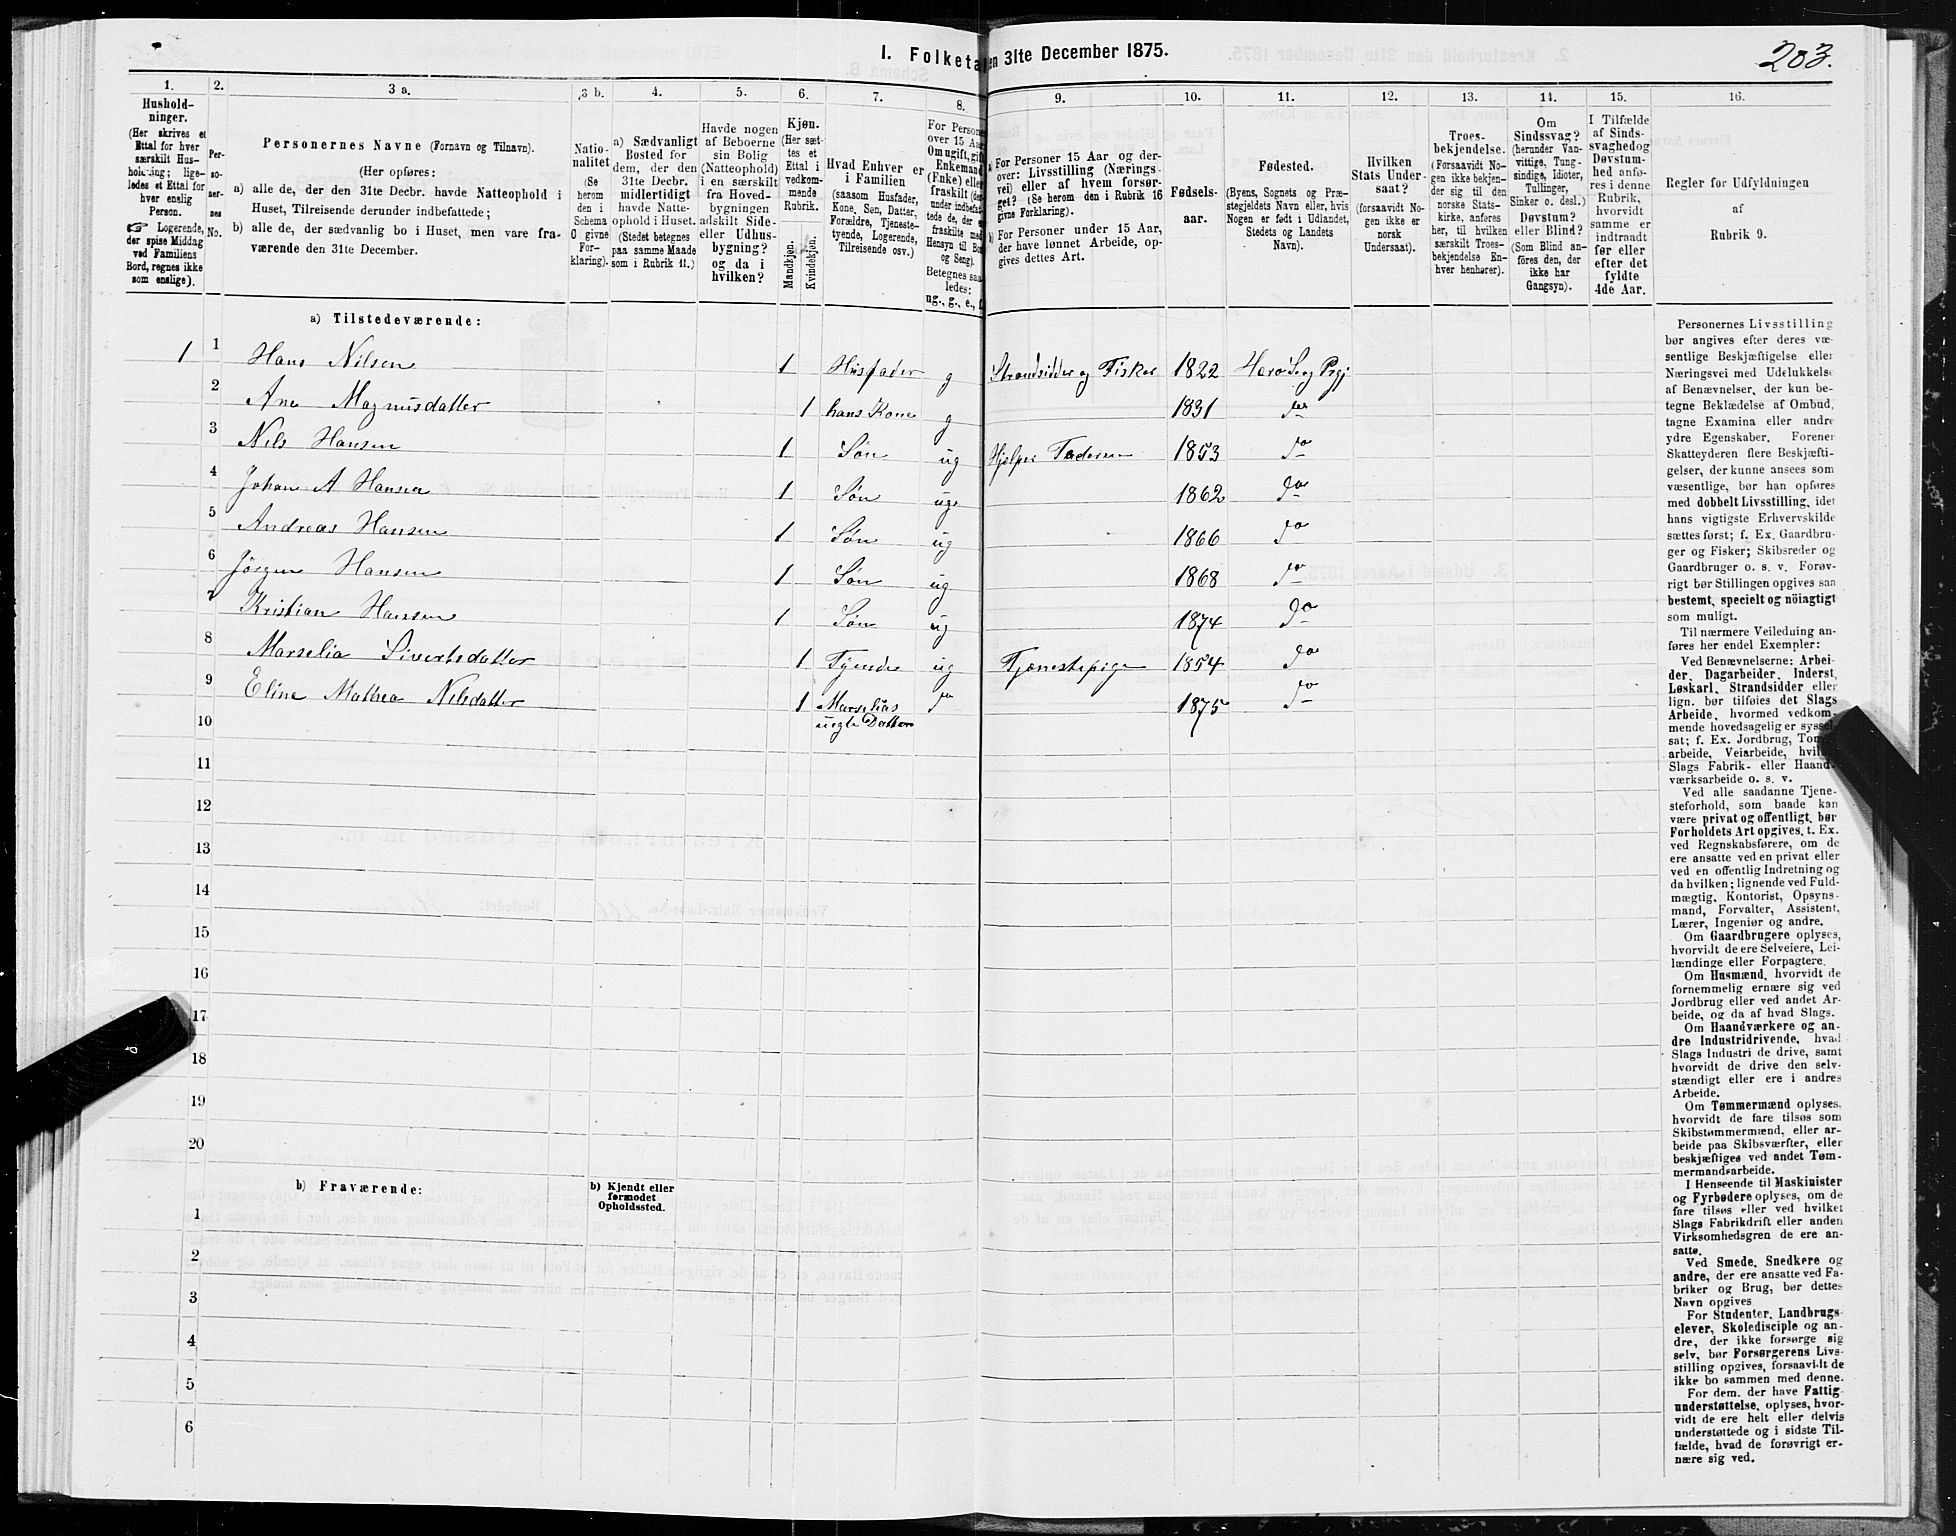 I. Folketa en 31te December 1875.
203.
1. 2. 3 a. 3 b. 4. 5. 6. 7. 8. 9. 10. 11. 12. 13. 14. 15. 16.
Hushold-
ninger.
(Her skrives et
Ettal for hver
særskilt Hus-
holdning; lige-
ledes et Ettal for
hver enslig
Person.
Logerende,
der spise Middag
ved Familiens
Bord, regnes ikke
som enslige).
Per-
so-
ner-
nes
No.
Personernes Navne (Fornavn og Tilnavn).
(Her opføres:
a) alle de, der den 31te Decbr. havde Natteophold i
Huset, Tilreisende derunder indbefattede;
b) alle de, der sædvanlig bo i Huset, men vare fra-
værende den 31te December.
Natio-
nalitet
(Se
herom
den i
Schema
C givne
For-
klaring).
a) Sædvanligt
Bosted for
dem, der den
31te Decbr.
midlertidigt
havde Natte-
ophold i Huset.
(Stedet betegnes
paa samme Maade
som i Rubrik 11.)
Havde nogen
af Beboerne
sin Bolig
(Natteophold)
i en særskilt
fra Hoved-
bygningen
adskilt Side-
eller Udhus-
bygning?
og da i
hvilken?
Kjøn.
(Her sæt-
tes et
Ettal i
vedkom-
mende
Rubrik.
Mandkjøn.
Kvindekjøn.
Hvad Enhver er
i Familien
(saasom Husfader,
Kone, Søn, Datter,
Forældre, Tjeneste-
tyende, Logerende,
Tilreisende osv.)
For Personer
over 15 Aar
Om ugift, gift,
Enkemand
(Enke) eller
fraskilt
Betegnes saa-
ledes:
ug., g., e., f.
a) For Personer 15 Aar og der-
over: Livsstilling (Nærings-
vei) eller af hvem forsør-
get? (Se herom den i Rubrik 16
givne Forklaring).
b) For Personer under 15 Aar,
der have lønnet Arbeide, op-
gives dettes Art.
Fødsels-
aar.
Fødested.
(Byens, Sognets og Præ-
stegjeldets Navn eller, hvis
Nogen er født i Udlandet,
Stedets og Landets
Navn).
Hvilken
Stats Under-
saat?
(forsaavidt No-
gen ikke er
norsk
Undersaat).
Troes-
bekjendelse.
(Forsaavidt No-
gen ikke bekjen-
der sig til den
norske Stats-
kirke, anføres
her, til hvilken
særskilt Troes-
bekjendelse En-
hver henhører).
Om
Sindssvag?
(herunder Van-
vittige, Tung-
sindige, Idioter,
Tullinger,
Sinker o. desl.)
Døvstum?
eller Blind?
(Som Blind an-
föres den, der
ikke har
Gangsyn).
I Tilfælde
af Sinds-
svaghed og
Døvstum-
hed anfø-
res i denne
Rubrik,
hvorvidt
samme er
indtraadt
før eller
efter det
fyldte
4de Aar.
Regler for Udfyldningen
af
Rubrik 9.
a) Tilstedeværende:
1 1 Hans Nilsen 1 Husfader g Strandsidder og Fisker 1822 Herø Sog Prgj
2 Ane Magnusdatter 1 hans Kone g 1831 do
3 Nils Hansen 1 Søn ug Hjelper Faderen 1853 do
4 Johan A Hansen 1 Søn ug 1862 do
5 Andreas Hansen 1 Søn ug 1866 do
6 Jörgen Hansen 1 Søn ug 1868 do
7 Kristian Hansen 1 Søn ug 1874 do
8 Marselia Sivertsdatter 1 Tyende ug Tjenestepige 1854 do
9 Eline Mathea Nilsdatter 1 Marselias do 1875 do
10 uegte Datter
11
12
13
14
15
16
17
18
19
20
b) Fraværende:
b) Kjendt eller
formodet
Opholdssted.
1
2
3
4
5
6
Personernes Livsstilling
bør angives efter deres væ-
sentlige Beskjæftigelse eller
Næringsvei med Udelukkelse
af Benævnelser, der kun be-
tegne Beklædelse af Ombud,
tagne Examina eller andre
ydre Egenskaber. Forener
Skatteyderen flere Beskjæfti-
gelser, der kunne ansees som
væsentlige, bør han opføres
med dobbelt Livsstilling, idet
hans vigtigste Erhvervskilde
sættes først; f. Ex. Gaardbru-
ger og Fisker; Skibsreder og
Gaardbruger o. s. v. Forøv-
rigt bør Stillingen opgives saa
bestemt, specielt og nöiagtigt
som muligt.
Til nærmere Veiledning an-
føres her endel Exempler:
Ved Benævnelserne: Arbei-
der, Dagarbeider, Inderst,
Løskarl, Strandsidder eller
lign. bør tilføies det Slags
Arbeide, hvormed vedkom-
mende hovedsagelig er syssel-
sat; f. Ex. Jordbrug, Tom
arbeide, Veiarbeide, hvil
Slags Fabrik- eller Haand-
værksarbeide o. s. v.
Ved alle saadanne Tjene-
steforhold, som baade kan
være privat og offentligt, bør
Forholdets Art opgives, t. Ex.
ved Regnskabsførere, om de
ere ansatte ved en privat eller
ved en offentlig Indretning og
da hvilken; lignende ved Fuld-
mægtig, Kontorist, Opsyns-
mand, Forvalter, Assistent,
Lærer, Ingeniør og andre.
Om Gaardbrugere oplyses,
hvorvidt de ere Selveiere, Lei-
lændinge eller Forpagtere.
Om Husmænd, hvorvidt de
fornemmelig ernære sig ved
Jordbrug eller ved andet Ar-
beide, og da af hvad Slags.
Om Haandværkere og an-
dre Industridrivende, hvad
Slags Industri de drive, samt
hvorvidt de drive den selv-
stændigt eller ere i andres
Arbeide.
Om Tømmermænd oplyses,
hvorvidt de fare tilsøs som
Skibstømmermænd, eller ar-
beide paa Skibsværfter, eller
beskjæftiges ved andet Tøm-
mermandsarbeide.
I Henseende til Maskinister
og Fyrbødere oplyses, om de
fare tilsøs eller ved hvilket
Slags Fabrikdrift eller anden
Virksomhedsgren de ere an-
satte.
Ved Smede, Snedkere og
andre, der ere ansatte ved Fa-
briker og Brug, bør dettes
Navn opgives
For Studenter, Landbrugs-
elever, Skoledisciple og an-
dre, der ikke forsørge sig
selv, bør Forsørgerens Livs-
stilling opgives, forsaavidt de
ikke bo sammen med denne.
For dem, der have Fattig-
understøttelse, oplyses, hvor-
vidt de ere helt eller delvis
understøttede og i sidste Til-
fælde, hvad de forøvrigt er-
nære sig ved.